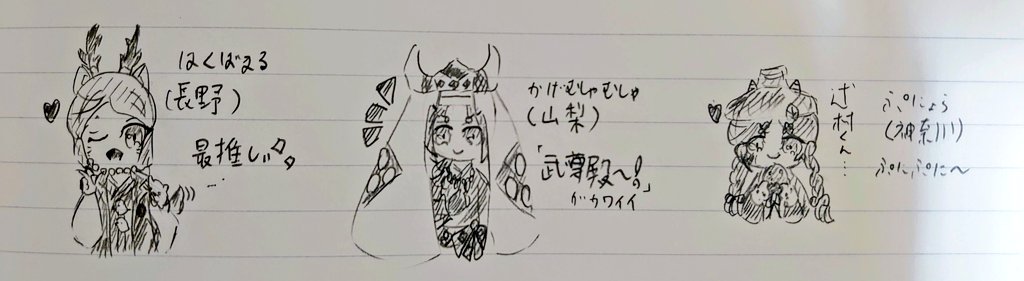 はくばまる
(長野)
最推し
…
かげむしゃむしゃ
(山梨)
「武尊殿〜!」
がカワイイ
村くん…
ぷにょら
(神奈川)
ぷにぷに〜